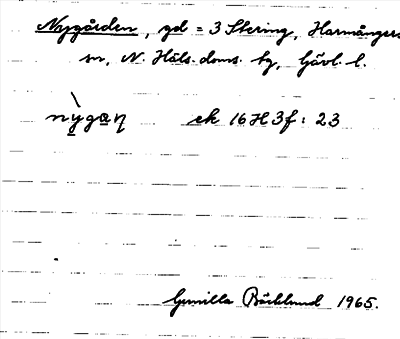 Nygården, gd = 3 Stering, Harmångers
sn, N. Häls. doms. sg, Gävl. l.
nỳgaŋ ek 16H3f: 23
Gunilla Bäcklund 1965.